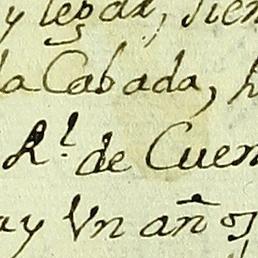 y legar, sien
la Cabada,
R.l de Cuen
ay Vn años